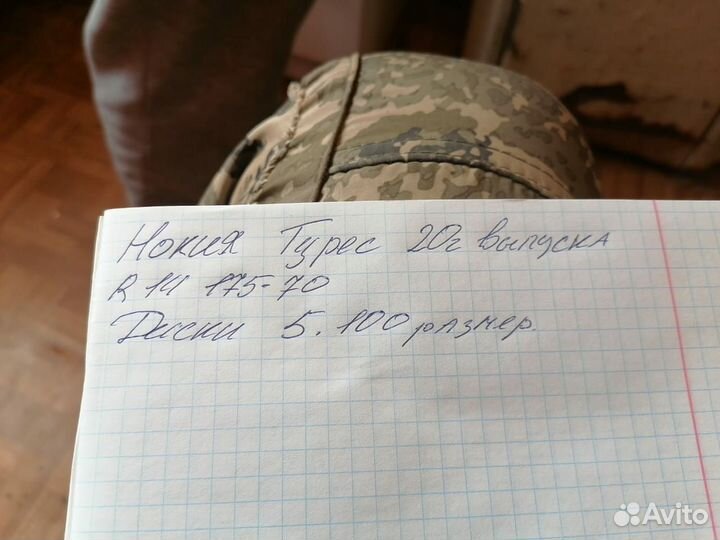 Нокия Турес 20г выпуска
R 14 175-70
Диски 5.100 размер.
Avito